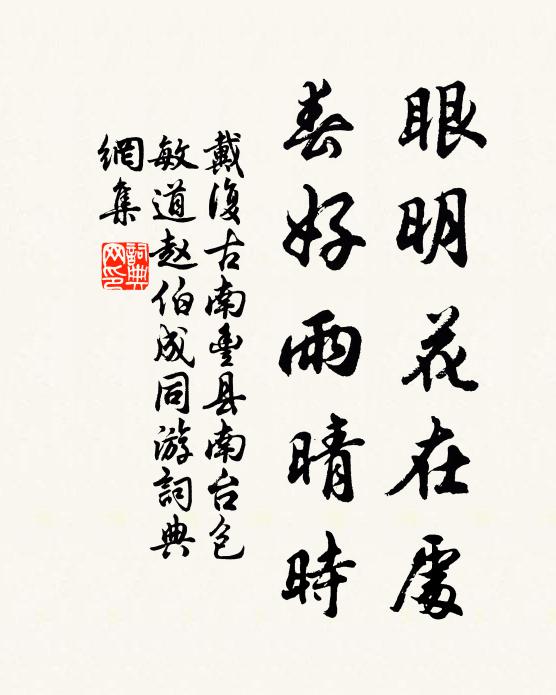 眼明花在處
春好雨晴時
戴復古南豊县南台包
敏道赵伯成同游詞典
網集
詞典網印